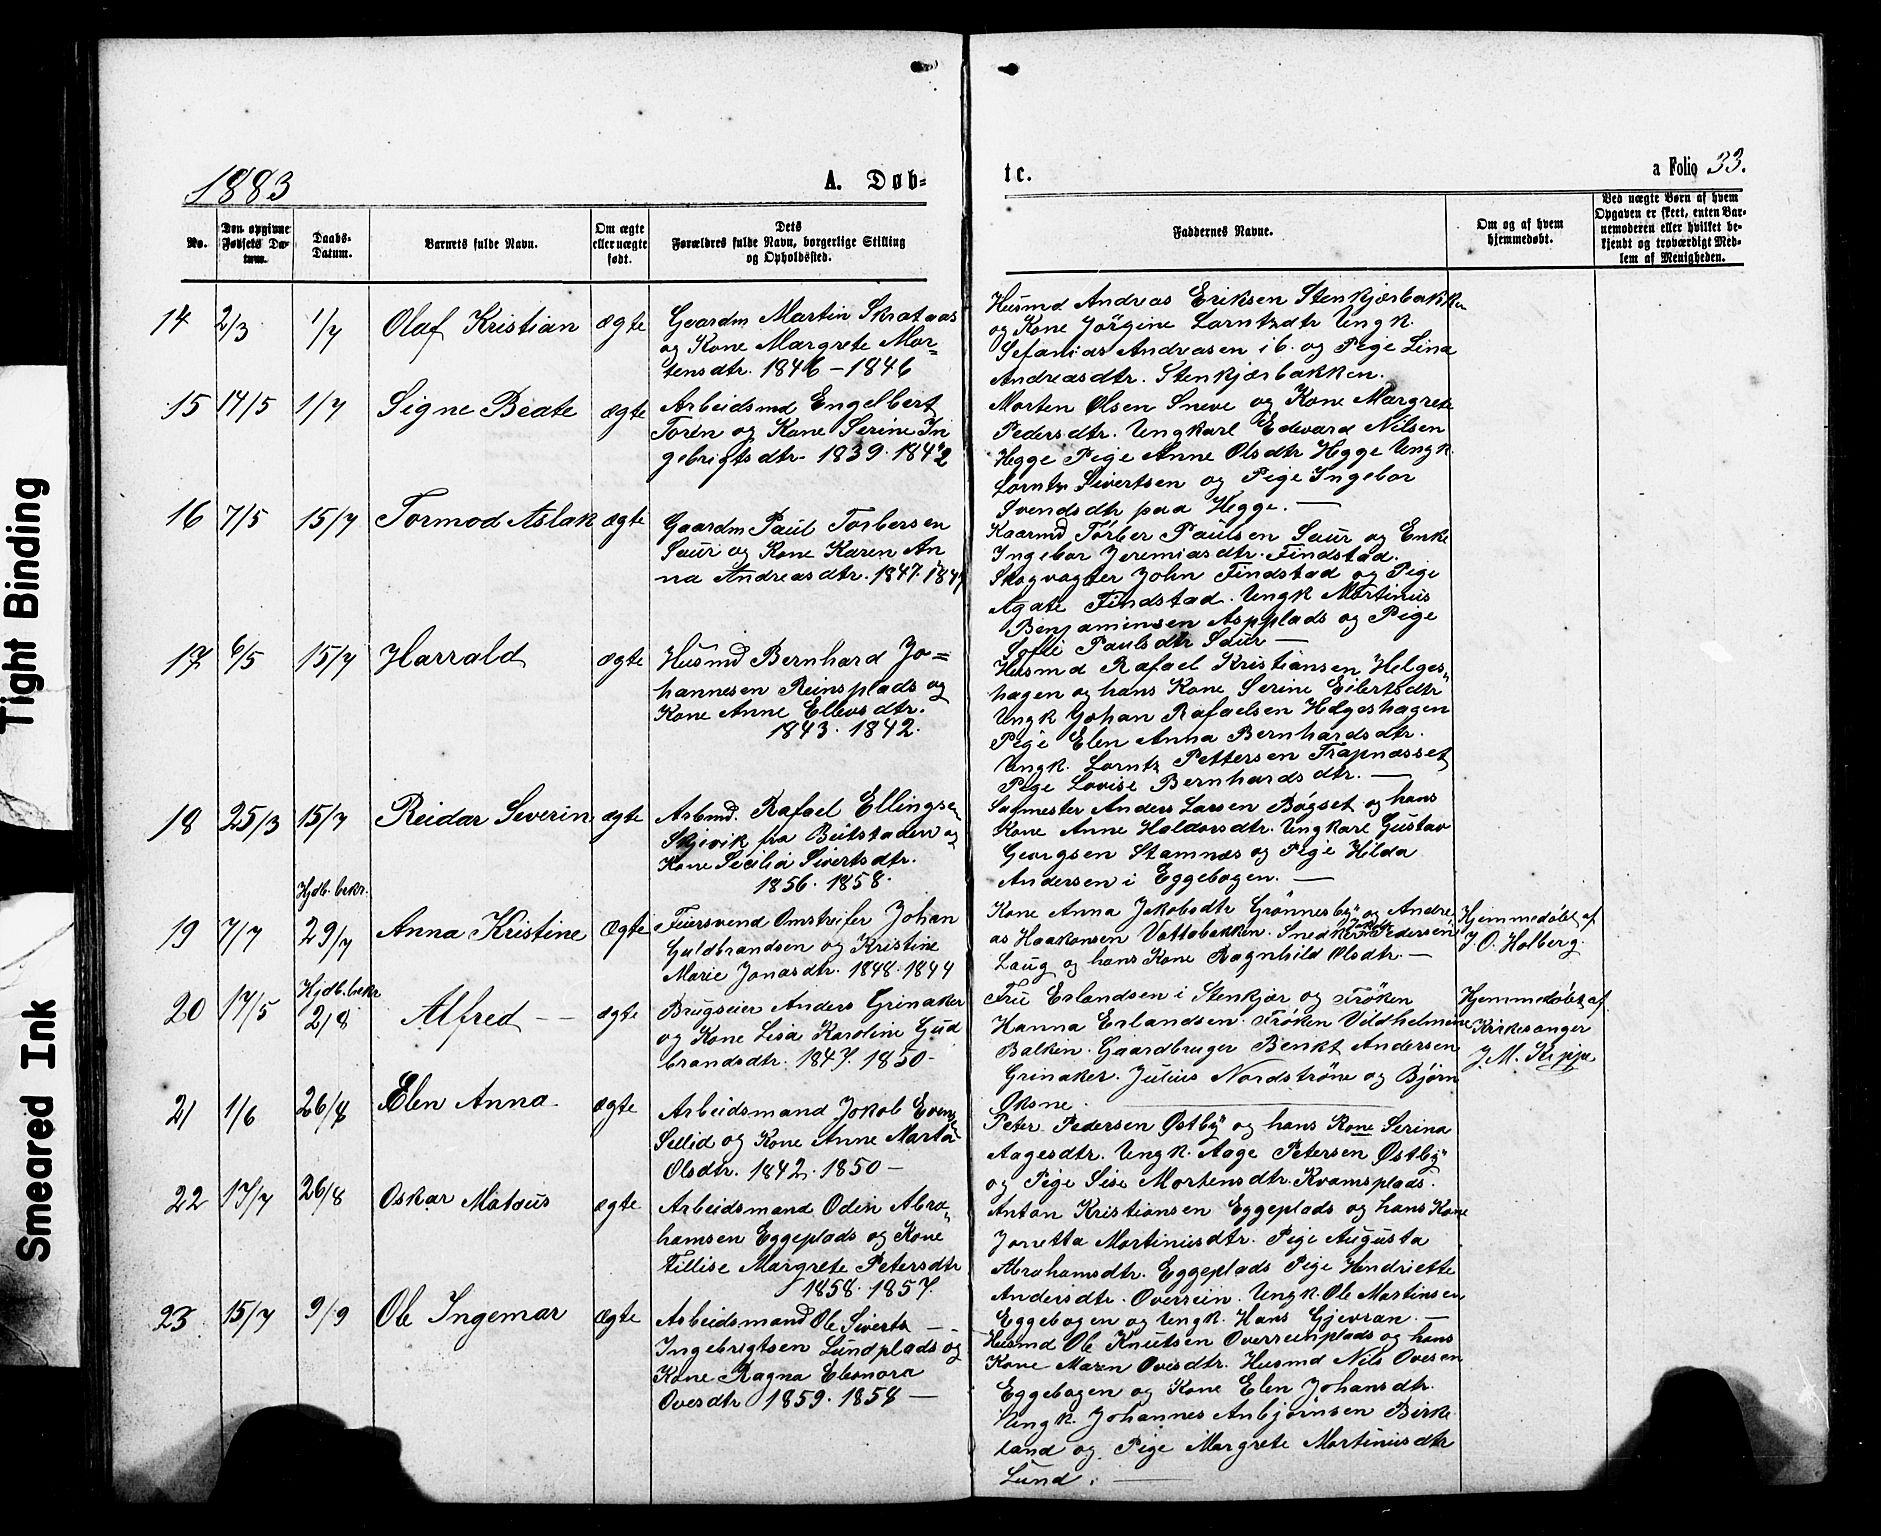 Tight Binding
Smeared Ink
1883
A. Døb-
te.
a Folio 33.
No.
Den opgivne Fødsels Datum.
Daabs-Datum.
Barnets fulde Navn.
Om ægte eller uægte født.
Dets Forældres fulde Navn, borgerlige Stilling og Opholdssted.
Faddernes Navne.
Om og af hvem hjemmedøbt.
Ved uægte Børn af hvem Opgaven er skeet, enten Barnemoderen eller hvilket bekjendt og troværdigt Medlem af Menigheden.
14 2/3 1/7 Olaf Kristian ægte
Gaardm Martin Skrataas
og Kone Margrete Mor=
tensdtr. 1846 - 1846
Husmd Andreas Eriksen Stenkjærbakken
og Kone Jörgine Larntzdtr Ungk.
Sefanias Andreasen i b. og Pige Lina
Andreasdtr. Stenkjærbakken.
15 14/5 1/7 Signe Beate ægte
Arbeidsmd Engelbert
Torén og Kone Serine In
gebrigtsdtr 1839. 1842
Morten Olsen Sneve og Kone Margrete
Pedersdtr. Ungkarl Edevard Nilsen
Hegge Pige Anne Olsdtr Hegge Ungk.
Lorntz Sivertsen og Pige Ingebor
Svendsdtr paa Hegge. —
16 7/5 15/7 Tormod Aslak ægte
Gaardm Paul Torbersen
Saur og Kone Karen An
na Andreasdtr. 1847.
Kaarmd Törber Paulsen Saur og Enke
Ingebor Jeremiasdtr. Findstad.
Skogvogter John Findstad og Pige
Agate Findstad. Ungk Martinus
Benjaminsen Aspplads og Pige
Sofie Paulsdtr Saur —
17 6/5 15/7 Harrald ægte
Husmd Bernhard Jo=
hannesen Reinsplads og
Kone Anne Ellevsdtr.
1843. 1842.
Husmd Rafael Kristiansen Helges=
hagen og hans Kone Serine Eilertsdtr
Ungk Johan Rafaelsen Helgeshagen
Pige Elen Anna Bernhardsdtr.
Ungk. Lorntz Pettersen Trapnæsset
Pige Lovise Bernhardsdtr. —
18 25/3 15/7 Reidar Severin ægte
Arbmd. Rafael Ellingsen
Skjevik fra Beitstaden og
Kone Secilia Sivertsdtr.
1856. 1858.
Sagmester Anders Larsen Bøgset og hans
Kone Anne Haldorsdtr. Ungkarl Gustav
Georgsen Stamnæs og Pige Hilda
Andersen i Eggebogen. —
Hjdb. bekr.
19 7/7 29/7 Anna Kristine Ægte
Feiersvend Omstreifer Johan
Guldbrandsen og Kristine
Marie Jonasdtr. 1848. 1844
Kone Anna Jakobsdtr Grønnesby og Andre
as Haakonsen Vattabakken. Snedker Pedersen
Laug og hans Kone Ragnhild Olsdtr. —
Hjemmedøbt af
J. O. Holberg.
Hjdb. bekr
20 17/5 2/8 Alfred — ægte
Brugseier Anders Grinaker
og Kone Lisa Karoline Gud
brandsdtr. 1847. 1850-
Fru Erlandsen i Stenkjær og Frøken
Hanna Erlandsen. Frøken Vildhelmine
Balken. Gaardbruger Benkt Andersen
Grinaker. Julius Nordstrøne og Bjørn
Oksne.
Hjemmedøbt af
Kirkesanger
J. M. Kippe
21 1/6 26/8 Elen Anna ægte
Arbeidsmand Jakob Evens
Sellid og Kone Anne Marta
Olsdtr. 1842. 1850 -
Peter Pedersen Østby og hans Kone Serina
Aagesdtr. Ungk. Aage Petersen Østby
og Pige Sise Mortensdtr. Kvamsplads.
22 17/7 26/8 Oskar Mateus ægte
Arbeidsmand Odin Abra=
hamsen Eggeplads og Kone
Tillise Margrete Petersdtr
1858. 1857.
Anton Kristiansen Eggeplads og hans Kone
Jonetta Martinusdtr. Pige Augusta
Abrahamsdtr. Eggeplads Pige Hendriette
Andersdtr. Overrein. Ungk. Ole Martinsen
Eggebogen og Ungk. Hans Gjevran. —
23 15/7 9/9 Ole Ingemar ægte
Arbeidsmand Ole Siverts —
Ingebrigtsen Lundplads og
Kone Ragna Eleonora
Ovesdtr 1859. 1858 —
Husmd Ole Knutsen Overreinplads og hans
Kone Maren Ovesdtr. Husmd Nils Ovesen
Eggebogen og Kone Elen Johansdtr.
Ungk. Johannes Anbjørnsen Birke
land og Pige Margrete Martinusdtr
Lund.